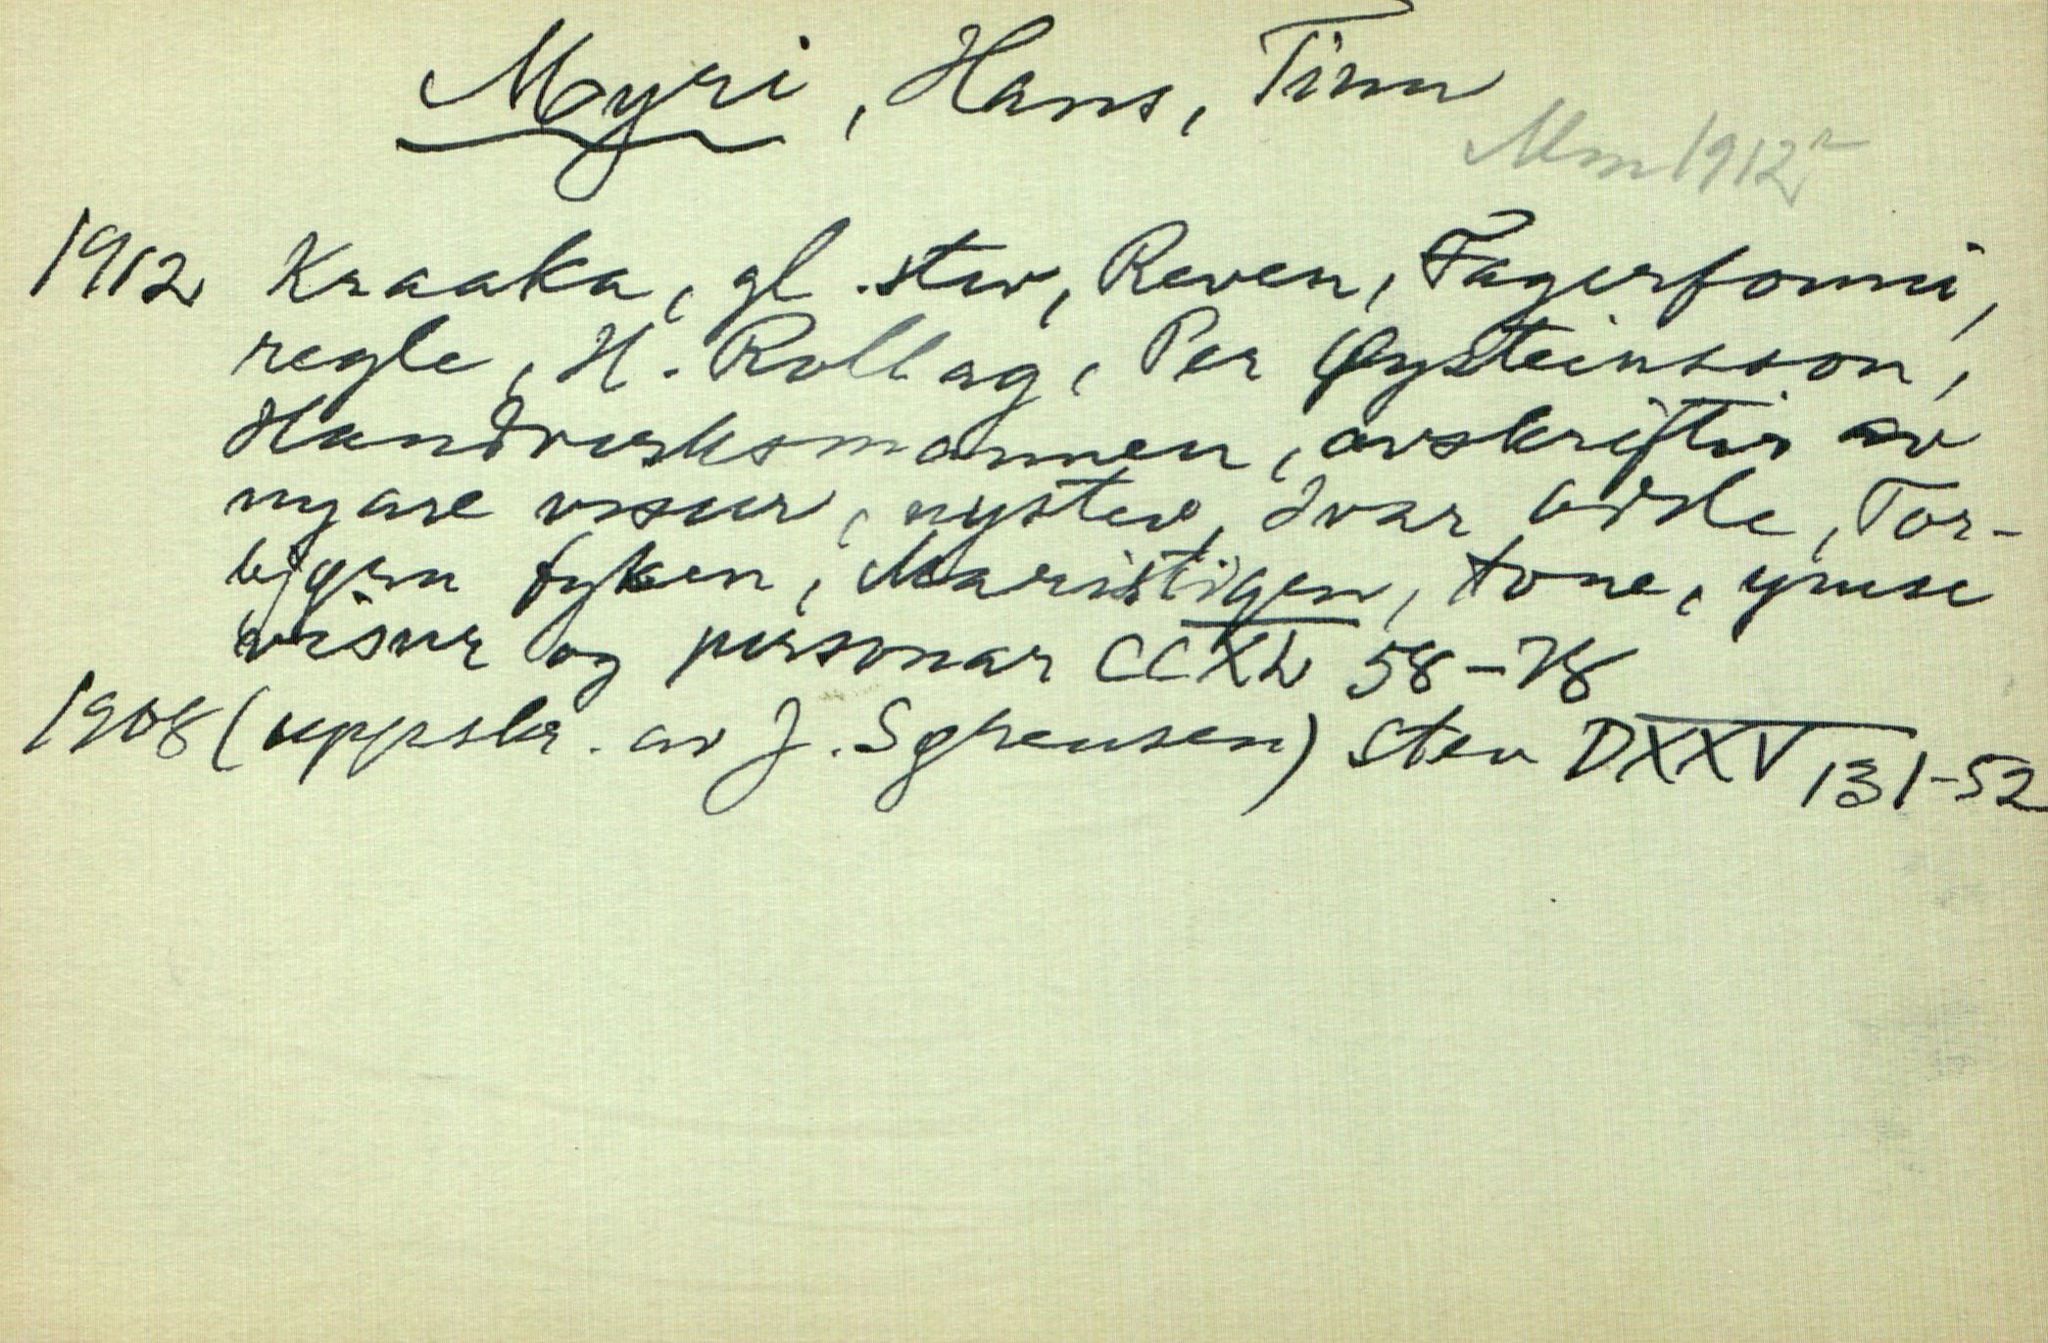 Myri, Hans, Tinn
Mm 1912
1912 Kraaka, gl. stev, Reven, Fagerfonni,
regle, H. Rollag, Per Øysteinsson,
Handverksmannen, avskriftir av
nyare visur, nystev, Ivar Elde, Tor-
bjørn fyken, Maristigen, tone, ymse
visur og personar CCXL 58-78
1908 (uppskr. av J. Sørensen) Stev DXXV 131-52